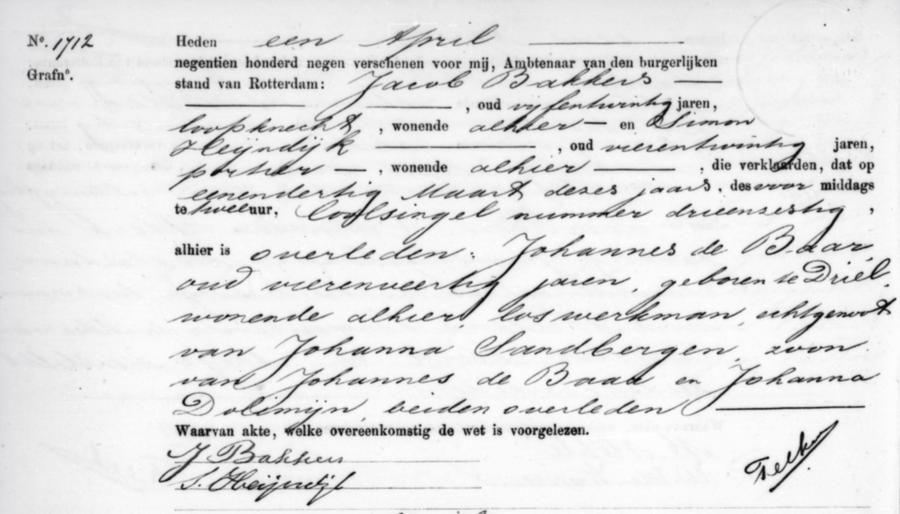 No. 1712 Heden een April
Grafno. negentien honderd negen verschenen voor mij, Ambtenaar van den burgerlijken
stand van Rotterdam: Jacob Bakkers
, oud vyfentwintig jaren,
loopknecht, wonende alhier en Simon
Heijndijk, oud vierentwintig jaren,
portier, wonende alhier, die verklaarden, dat op
eenendertig Maart dezes jaars, des voor middags
te twee uur, Coolsingel nummer drieenzestig,
alhier is overleden: Johannes de Baar,
oud vierenveertig jaren, geboren te Driel,
wonende alhier, loswerkman, echtgenoot
van Johanna Sandbergen, zoon
van Johannes de Baar en Johanna
Dolimijn, beiden overleden
Waarvan akte, welke overeenkomstig de wet is voorgelezen.
J Bakkers
S. Heijndijk